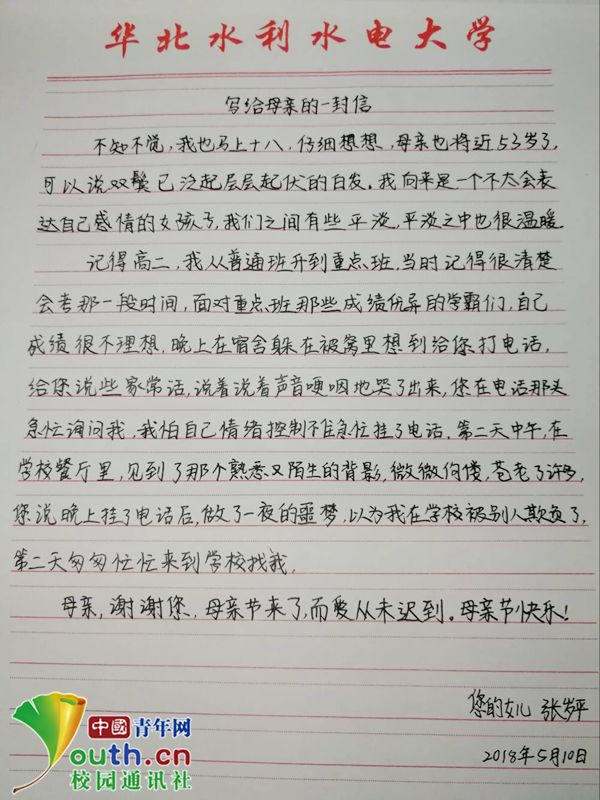 华北水利水电大学
写给母亲的一封信
不知不觉，我也马上十八，仔细想想，母亲也将近53岁了，
可以说双鬓已泛起层层起伏的白发。我向来是一个不太会表
达自己感情的女孩子，我们之间有些平淡，平淡之中也很温暖
记得高二，我从普通班升到重点班，当时记得很清楚
会考那一段时间，面对重点班那些成绩优异的学霸们，自己
成绩很不理想，晚上在宿舍躲在被窝里想到给您打电话，
给您说些家常话，说着说着声音哽咽地哭了出来，您在电话那头
急忙询问我，我怕自己情绪控制不住急忙挂了电话。第二天中午，在
学校餐厅里，见到了那个熟悉又陌生的背影，微微佝偻，苍老了许多，
您说晚上挂了电话后，做了一夜的噩梦，以为我在学校被别人欺负了，
第二天匆匆忙忙来到学校找我。
母亲，谢谢您，母亲节来了，而爱从未迟到。母亲节快乐！
您的女儿 张梦平
2018年5月10日
中國青年网
youth.cn
校园通讯社